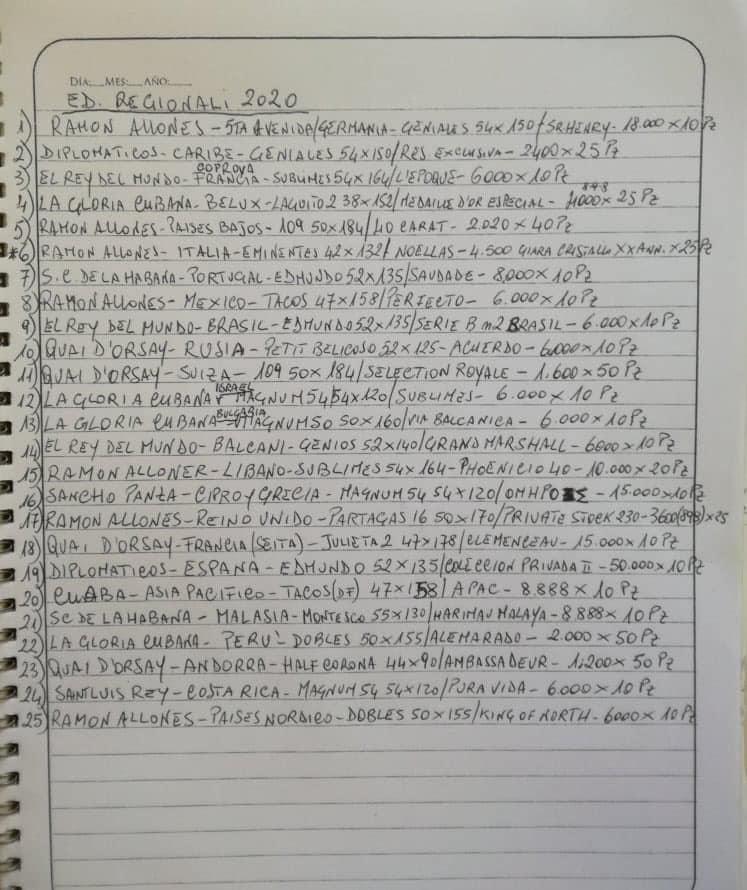 DIA:___MES:___AÑO:____
ED. REGIONALI 2020
1) RAMON ALLONES - 5TA AVENIDA/GERMANIA - GENIALES 54x150/SR.HENRY - 18.000 x 10 Pz
2) DIPLOMATICOS - CARIBE - GENIALES 54x150/RES. EXCLUSIVA - 2400 x 25 Pz
COPROVA
3) EL REY DEL MUNDO - FRANCIA - SUBLIMES 54 x 164/L'EPOQUE - 6000 x 10 Pz
898
4) LA GLORIA CUBANA - BELUX - LAGUITO 2 38 x 152/MEDAILLE D'OR ESPECIAL - 4000 x 25 Pz
5) RAMON ALLONES - PAISES BAJOS - 109 50x184/40 CARAT - 2.020 x 40 Pz
*6) RAMON ALLONES - ITALIA - EMINENTES 42 x 132/ NOELLAS - 4.500 GIARA CRISTALLO XX ANN. x 25 Pz
7) S.C. DE LA HABANA - PORTUGAL - EDMUNDO 52 x 135/SAUDADE - 8,000 x 10 Pz
8) RAMON ALLONES - MEXICO - TACOS 47 x 158/PERFECTO - 6.000 x 10 Pz
9) EL REY DEL MUNDO - BRASIL - EDMUNDO 52 x 135/SERIE B m2 BRASIL - 6.000 x 10 Pz
10) QUAI D'ORSAY - RUSIA - PETIT BELICOSO 52 x 125 - ACUERDO - 6,000 x 10 Pz
11) QUAI D'ORSAY - SUIZA - 109 50 x 184/SELECTION ROYALE - 1.600 x 50 Pz
ISRAEL
12) LA GLORIA CUBANA MAGNUM 54/54 x 120/SUBLIMES - 6.000 x 10 Pz
BULGARIA
13) LA GLORIA CUBANA MAGNUM 50 50 x 160/VIA BALCANICA - 6.000 x 10 Pz
14) EL REY DEL MUNDO - BALCANI - GENIOS 52 x 140/GRAND MARSHALL - 6000 x 10 Pz
15) RAMON ALLONER - LIBANO - SUBLIMES 54 x 164 - PHOENICIO 40 - 10.000 x 20 Pz
16) SANCHO PANZA - CIPRO Y GRECIA - MAGNUM 54 54 x 120/OMHPOΣ - 15.000 x 10 Pz
17) RAMON ALLONES - REINO UNIDO - PARTAGAS 16 50 x 170/PRIVATE STOCK 230 - 3600(898) x 25
18) QUAI D'ORSAY - FRANCIA (SEITA) - JULIETA 2 47 x 178/CLEMENCEAU - 15.000 x 10 Pz
19) DIPLOMATICOS - ESPANA - EDMUNDO 52 x 135/COLECCION PRIVADA II - 50.000 x 10 Pz
20) CUABA - ASIA PACIFICO - TACOS (DF) 47 x 158/APAC - 8.888 x 10 Pz
21) SC DE LA HABANA - MALASIA - MONTESCO 55 x 130/HARIMAU MALAYA - 8.888 x 10 Pz
22) LA GLORIA CUBANA - PERU' DOBLES 50 x 155/ALEMARADO - 2.000 x 50 Pz
23) QUAI D'ORSAY - ANDORRA - HALF CORONA 44 x 90/AMBASSADEUR - 1,200 x 50 Pz
24) SANT LUIS REY - COSTA RICA - MAGNUM 54 54 x 120/PURA VIDA - 6.000 x 10 Pz
25) RAMON ALLONES - PAISES NORDICO - DOBLES 50 x 155/KING OF NORTH - 6000 x 10 Pz